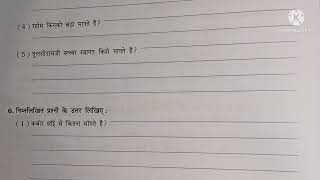 ( 4 ) रहीम किनको बड़ा मानते है ?
( 5 ) तुलसीदासजी सच्चा स्वागत किसे मानते है ?
6. निम्नलिखित प्रश्नों के उत्तर लिखिए :
( 1 ) कबीर साँई से कितना माँगते है ?